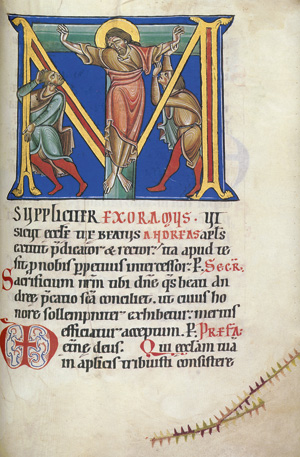 M
SUPPLICITER EXORAMUS. UT
sicut eccłę tuę beatus ANDREAS apłs
extitit p̄dicator & rector. ita apud te
sit pro nobis perpetuus intercessor. P. SECR̄.
Sacrificium nr̄m tibi dn̄e qs beati an
dreę p̄catio sc̄a conciliet. ut cuius ho
nore sollenniter exhibetur. meritis
efficiatur acceptum. P. PREFA
ęterne deus. Qui eccłam tua
in ap̄licis tribuisti consistere